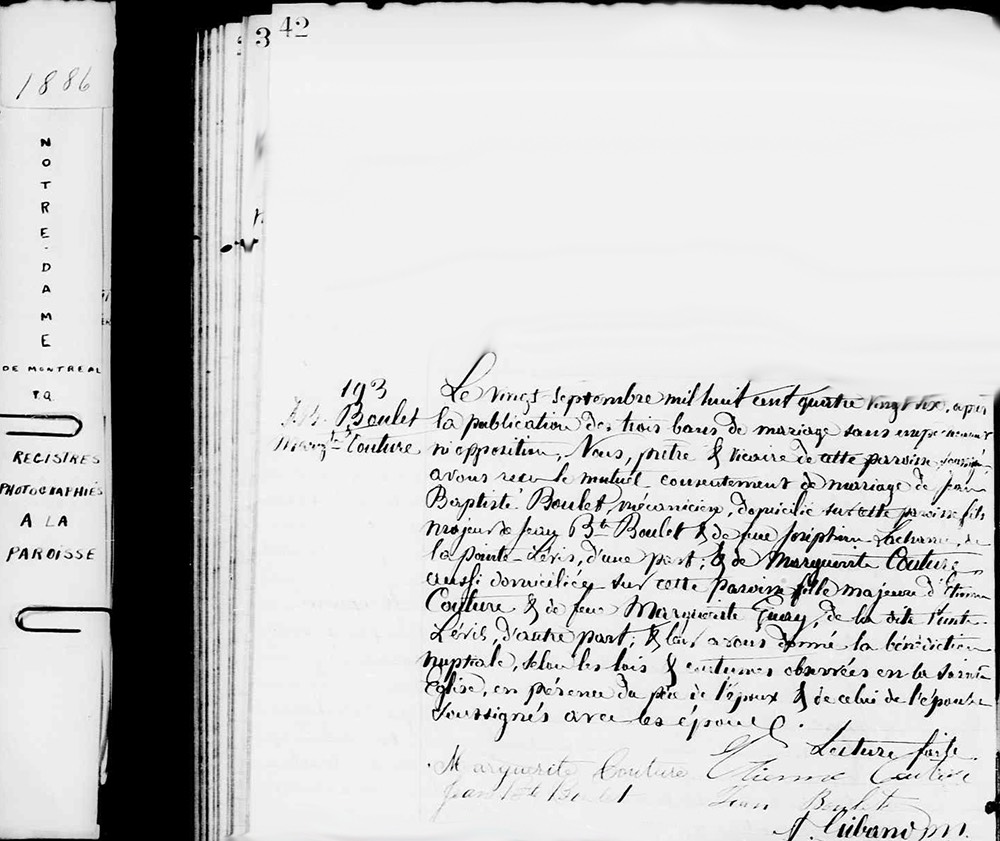 42
3
1886
NOTRE-DAME
DE MONTREAL
P.Q.
REGISTRES
PHOTOGRAPHIÉS
A LA
PAROISSE
193
J. Bte Boulet
Margte Couture
Le vingt septembre mil huit cent quatre vingt six, après
la publication de trois bans de mariage sans empêchement
ni opposition, Nous, prêtre & vicaire de cette paroisse soussigné
avons reçu le mutuel consentement de mariage de Jean
Baptiste Boulet, mécanicien, domicilié sur cette paroisse fils
majeur de Jean Bte Boulet & de feue Joséphine Lachance, de
la pointe-Lévis, d'une part; & de Marguerite Couture
aussi domiciliée sur cette paroisse fille majeure d'Etienne
Couture & de feue Marguerite Guay, de la dite Pointe-
Lévis, d'autre part; & leur avons donné la bénédiction
nuptiale, selon les lois & coutumes observées en la Sainte
Eglise, en présence du père de l'époux & de celui de l'épouse
soussignés avec les époux.
Lecture faite
Marguerite Couture Etienne Couture
Jean Bte Boulet Jean Boulet